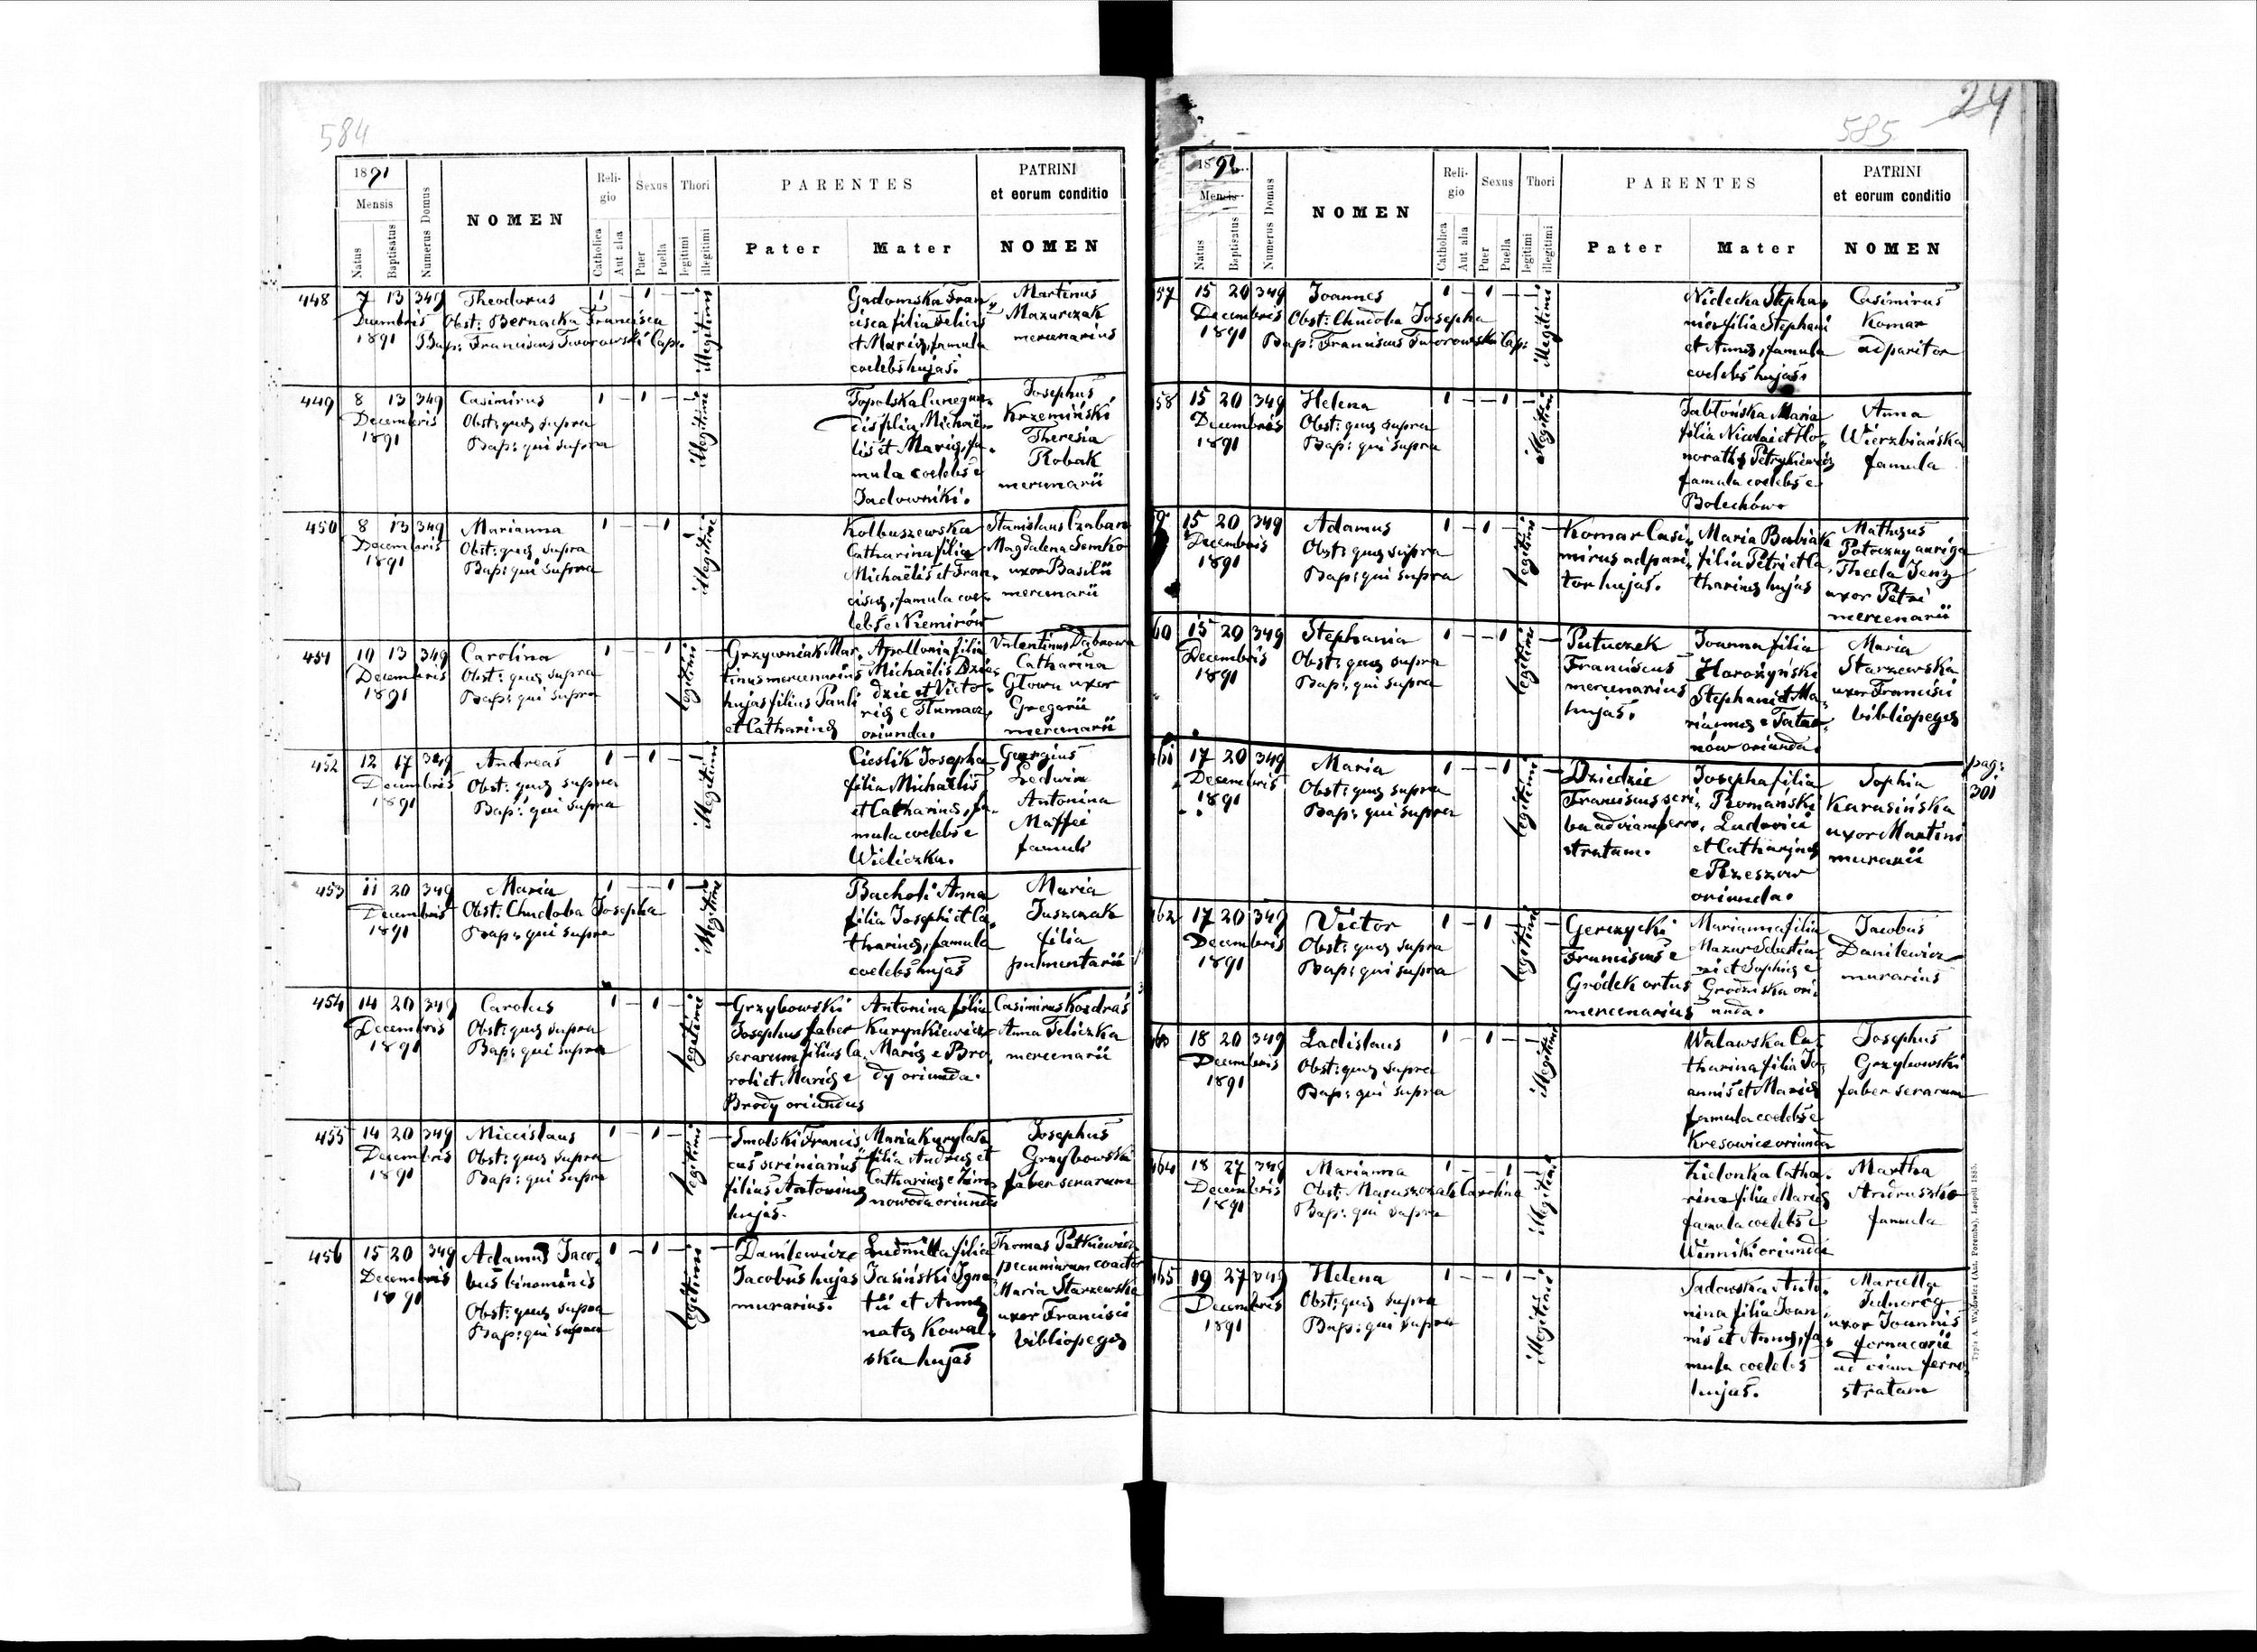 584
1891
Mensis
Natus
Baptisatus
Numerus Domus
NOMEN
Reli-
gio
Catholica
Aut alia
Sexus
Puer
Puella
Thori
legitimi
illegitimi
PARENTES
Pater
Mater
PATRINI
et eorum conditio
NOMEN
448
7 13 349
Decembris
1891
Theodorus
Obst: Bernacka Francisca
Bap: Franciscus Tworowski Cap:
1 – 1 –
illegitimi
Gadomska Fran
cisca filia Felicis
et Mariæ, famula
coelebs hujas.
Martinus
Mazurczak
mercenarius
449
8 13 349
Decembris
1891
Casimirus
Obst: quæ supra
Bap: qui supra
1 – 1 –
illegitimi
Topolska Cunegun-
dis filia Michaë-
lis et Mariæ, fa-
mula coelebs e
Jadowniki.
Josephus
Krzemiński
Theresia
Robak
mercenarii
450
8 13 349
Decembris
1891
Marianna
Obst: quæ supra
Bap: qui supra
1 – – 1
illegitimi
Kolbuszewska
Catharina filia
Michaëlis et Fran-
ciscæ, famula coe-
lebs e Niemirów
Stanislaus Czaban
Magdalena Semko
uxor Basilii
mercenarii
451
10 13 349
Decembris
1891
Carolina
Obst: quæ supra
Bap: qui supra
1 – – 1
legitimi
Grzywniak Mar-
tinus mercenarius
hujas filius Pauli
et Catharinæ
Apollonia filia
Michaëlis Dzie-
dzic et Victo-
riæ e Tłumacz
oriunda.
Valentinus Dąbrowa
Catharina
Głowa uxor
Gregorii
mercenarii
452
12 17 349
Decembris
1891
Andreas
Obst: quæ supra
Bap: qui supra
1 – 1 –
illegitimi
Cieslik Josepha
filia Michaëlis
et Catharinæ, fa-
mula coelebs e
Wieliczka.
Georgius
Ledwin
Antonina
Maffei
famuli
453
11 20 349
Decembris
1891
Maria
Obst: Chudoba Josepha
Bap: qui supra
1 – – 1
illegitimi
Bacholi Anna
filia Josephi et Ca-
tharinæ, famula
coelebs hujas
Maria
Juszczak
filia
pulmentarii
454
14 20 349
Decembris
1891
Carolus
Obst: quæ supra
Bap: qui supra
1 – 1 –
legitimi
Grzybowski
Josephus faber
serarum filius Ca-
roli et Mariæ e
Brody oriundus
Antonina filia
Kurynkiewicz
Mariæ e Bro-
dy oriunda.
Casimirus Kozdraś
Anna Feliczka
mercenarii
455
14 20 349
Decembris
1891
Miecislaus
Obst: quæ supra
Bap: qui supra
1 – 1 –
legitimi
Smolski Francis-
cus scriniarius
filius Antoninæ
hujas.
Maria Kurylak
filia Andreæ et
Catharinæ e Zim-
nowoda oriunda
Josephus
Grzybowski
faber serarum
456
15 20 349
Decembris
1891
Adamus Jaco-
bus binominis
Obst: quæ supra
Bap: qui supra
1 – 1 –
legitimi
Danilewicz
Jacobus hujas
murarius.
Ludmilla filia
Jasiński Igna-
tii et Annæ
natæ Kowal-
ska hujas
Thomas Patkiewicz
pecuniarum coactor
Maria Starzewska
uxor Francisci
bibliopegæ
24
585
1891
Mensis
Natus
Baptisatus
Numerus Domus
NOMEN
Reli-
gio
Catholica
Aut alia
Sexus
Puer
Puella
Thori
legitimi
illegitimi
PARENTES
Pater
Mater
PATRINI
et eorum conditio
NOMEN
57
15 20 349
Decembris
1891
Joannes
Obst: Chudoba Josepha
Bap: Franciscus Tworowski Cap:
1 – 1 –
illegitimi
Nidecka Stepha-
nia filia Stephani
et Annæ, famula
coelebs hujas.
Casimirus
Komar
adparitor
58
15 20 349
Decembris
1891
Helena
Obst: quæ supra
Bap: qui supra
1 – – 1
illegitimi
Jabłońska Maria
filia Nicolai et Ho-
noratæ Petrykiewicz
famula coelebs e
Bolechów
Anna
Wierzbiańska
famula
9
15 20 349
Decembris
1891
Adamus
Obst: quæ supra
Bap: qui supra
1 – 1 –
legitimi
Komar Casi-
mirus adpari-
tor hujas.
Maria Babiak
filia Petri et Ca-
tharinæ hujas
Mathæus
Potoczny auriga
Thecla Jenz
uxor Petri
mercenarii
60
15 20 349
Decembris
1891
Stephania
Obst: quæ supra
Bap: qui supra
1 – – 1
legitimi
Putuczek
Franciscus
mercenarius
hujas.
Joanna filia
Horożyński
Stephani et Ma-
riannæ e Tata-
nów oriunda.
Maria
Starzewska
uxor Francisci
bibliopegæ
61
17 20 349
Decembris
1891
Maria
Obst: quæ supra
Bap: qui supra
1 – – 1
legitimi
Dziedzic
Franciscus scri-
ba ad viam ferro-
stratam.
Josepha filia
Romański
Ludovici
et Catharinæ
e Rzeszów
oriunda.
Sophia
Karasińska
uxor Martini
murarii
pag:
301
62
17 20 349
Decembris
1891
Victor
Obst: quæ supra
Bap: qui supra
1 – 1 –
legitimi
Gerczycki
Franciscus e
Gródek ortus
mercenarius
Marianna filia
Mazur Sebastia-
ni et Sophiæ e
Grodziska ori-
unda.
Jacobus
Danilewicz
murarius
63
18 20 349
Decembris
1891
Ladislaus
Obst: quæ supra
Bap: qui supra
1 – 1 –
illegitimi
Walawska Ca-
tharina filia Jo-
annis et Mariæ
famula coelebs e
Kresowicz oriunda
Josephus
Grzybowski
faber serarum
64
18 27 349
Decembris
1891
Marianna
Obst: Maruszczak Carolina
Bap: qui supra
1 – – 1
illegitimi
Zielonka Catha-
rina filia Mariæ
famula coelebs e
Winniki oriunda
Martha
Andruszko
famula
65
19 27 349
Decembris
1891
Helena
Obst: quæ supra
Bap: qui supra
1 – – 1
illegitimi
Sadowska Anto-
nina filia Joan-
nis et Annæ, fa-
mula coelebs
hujas.
Marcella
Jednorog
uxor Joannis
fornacarii
ad viam ferro-
stratam
Typis A. Wajdowicz (Ant. Poremba), Leopoli 1885.